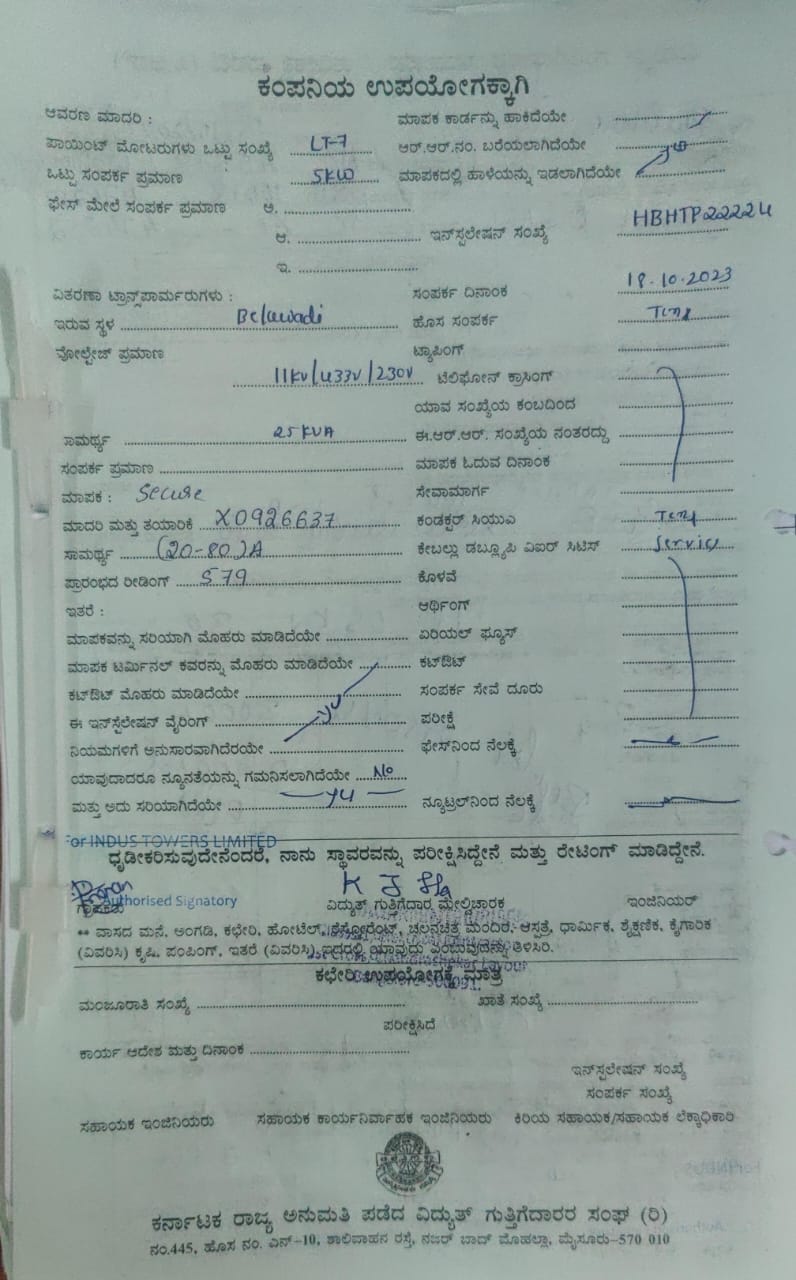 ಕಂಪನಿಯ ಉಪಯೋಗಕ್ಕಾಗಿ
ಆವರಣ ಮಾದರಿ : ಮಾಪಕ ಕಾರ್ಡನ್ನು ಹಾಕಿದೆಯೇ
ಪಾಯಿಂಟ್ ಮೋಟರುಗಳು ಒಟ್ಟು ಸಂಖ್ಯೆ LT-7 ಆರ್.ಆರ್.ನಂ. ಬರೆಯಲಾಗಿದೆಯೇ
ಒಟ್ಟು ಸಂಪರ್ಕ ಪ್ರಮಾಣ 5KW ಮಾಪಕದಲ್ಲಿ ಹಾಳೆಯನ್ನು ಇಡಲಾಗಿದೆಯೇ
ಫೇಸ್ ಮೇಲೆ ಸಂಪರ್ಕ ಪ್ರಮಾಣ ಅ.
ಆ. ಇನ್‌ಸ್ಟಲೇಷನ್ ಸಂಖ್ಯೆ HBHTP22224
ಇ.
ವಿತರಣಾ ಟ್ರಾನ್ಸ್‌ಪಾರ್ಮರುಗಳು : ಸಂಪರ್ಕ ದಿನಾಂಕ 18.10.2023
ಇರುವ ಸ್ಥಳ Belawadi ಹೊಸ ಸಂಪರ್ಕ Temp
ವೋಲ್ಟೇಜ್ ಪ್ರಮಾಣ ಟ್ಯಾಪಿಂಗ್
11KV/433V/230V ಟೆಲಿಫೋನ್ ಕ್ರಾಸಿಂಗ್
ಯಾವ ಸಂಖ್ಯೆಯ ಕಂಬದಿಂದ
ಸಾಮರ್ಥ್ಯ 25KVA ಈ.ಆರ್.ಆರ್. ಸಂಖ್ಯೆಯ ನಂತರದ್ದು
ಸಂಪರ್ಕ ಪ್ರಮಾಣ ಮಾಪಕ ಓದುವ ದಿನಾಂಕ
ಮಾಪಕ : Secure ಸೇವಾಮಾರ್ಗ
ಮಾದರಿ ಮತ್ತು ತಯಾರಿಕೆ X0926637 ಕಂಡಕ್ಟರ್ ಸಿಯುಎ Temp
ಸಾಮರ್ಥ್ಯ (20-80)A ಕೇಬಲ್ಲು ಡಬ್ಲ್ಯೂಪಿ ಎಐರ್ ಸಿಟಿಸ್ Service
ಪ್ರಾರಂಭದ ರೀಡಿಂಗ್ 579 ಕೊಳವೆ
ಇತರೆ : ಅರ್ಥಿಂಗ್
ಮಾಪಕವನ್ನು ಸರಿಯಾಗಿ ಮೊಹರು ಮಾಡಿದೆಯೇ ಏರಿಯಲ್ ಫ್ಯೂಸ್
ಮಾಪಕ ಟರ್ಮಿನಲ್ ಕವರನ್ನು ಮೊಹರು ಮಾಡಿದೆಯೇ ಕಟ್‌ಔಟ್
ಕಟ್‌ಔಟ್ ಮೊಹರು ಮಾಡಿದೆಯೇ ಸಂಪರ್ಕ ಸೇವೆ ದೂರು
ಈ ಇನ್‌ಸ್ಟಲೇಷನ್ ವೈರಿಂಗ್ ಪರೀಕ್ಷೆ
ನಿಯಮಗಳಿಗೆ ಅನುಸಾರವಾಗಿದೆರಯೇ ಫೇಸ್‌ನಿಂದ ನೆಲಕ್ಕೆ
ಯಾವುದಾದರೂ ನ್ಯೂನತೆಯನ್ನು ಗಮನಿಸಲಾಗಿದೆಯೇ No
ಮತ್ತು ಅದು ಸರಿಯಾಗಿದೆಯೇ ನ್ಯೂಟ್ರಲ್‌ನಿಂದ ನೆಲಕ್ಕೆ
For INDUS TOWERS LIMITED
ಧೃಡೀಕರಿಸುವುದೇನೆಂದರೆ, ನಾನು ಸ್ಥಾವರವನ್ನು ಪರೀಕ್ಷಿಸಿದ್ದೇನೆ ಮತ್ತು ರೇಟಿಂಗ್ ಮಾಡಿದ್ದೇನೆ.
Authorised Signatory
ಗ್ರಾಹಕರು ವಿದ್ಯುತ್ ಗುತ್ತಿಗೆದಾರ ಮೇಲ್ವಿಚಾರಕ ಇಂಜಿನಿಯರ್
** ವಾಸದ ಮನೆ, ಅಂಗಡಿ, ಕಛೇರಿ, ಹೋಟೆಲ್, ರೆಸ್ಟೋರೆಂಟ್, ಚಲನಚಿತ್ರ ಮಂದಿರ, ಆಸ್ಪತ್ರೆ, ಧಾರ್ಮಿಕ, ಶೈಕ್ಷಣಿಕ, ಕೈಗಾರಿಕ
(ವಿವರಿಸಿ) ಕೃಷಿ, ಪಂಪಿಂಗ್, ಇತರೆ (ವಿವರಿಸಿ) ಇದರಲ್ಲಿ ಯಾವುದು ಎಂಬುವುದನ್ನು ತಿಳಿಸಿರಿ.
ಕಛೇರಿ ಉಪಯೋಗಕ್ಕೆ ಮಾತ್ರ
ಮಂಜೂರಾತಿ ಸಂಖ್ಯೆ ಖಾತೆ ಸಂಖ್ಯೆ
ಪರೀಕ್ಷಿಸಿದೆ
ಕಾರ್ಯ ಆದೇಶ ಮತ್ತು ದಿನಾಂಕ
ಇನ್‌ಸ್ಟಲೇಷನ್ ಸಂಖ್ಯೆ
ಸಂಪರ್ಕ ಸಂಖ್ಯೆ
ಸಹಾಯಕ ಇಂಜಿನಿಯರು ಸಹಾಯಕ ಕಾರ್ಯನಿರ್ವಾಹಕ ಇಂಜಿನಿಯರು ಕಿರಿಯ ಸಹಾಯಕ/ಸಹಾಯಕ ಲೆಕ್ಕಾಧಿಕಾರಿ
ಕರ್ನಾಟಕ ರಾಜ್ಯ ಅನುಮತಿ ಪಡೆದ ವಿದ್ಯುತ್ ಗುತ್ತಿಗೆದಾರರ ಸಂಘ (ರಿ)
ನಂ.445, ಹೊಸ ನಂ. ಎನ್-10, ಶಾಲಿವಾಹನ ರಸ್ತೆ, ನಜರ್ ಬಾದ್ ಮೊಹಲ್ಲಾ, ಮೈಸೂರು-570 010